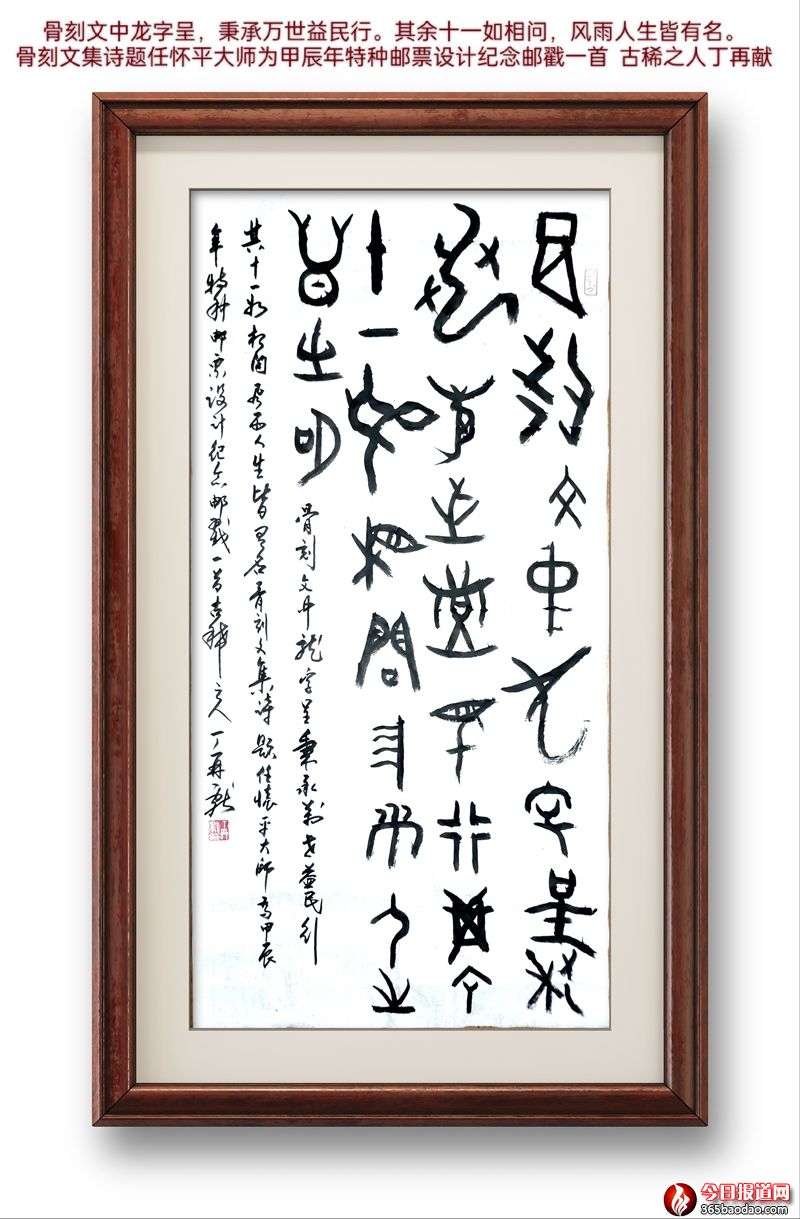 骨刻文中龙字呈，秉承万世益民行。其余十一如相问，风雨人生皆有名。
骨刻文集诗题任怀平大师为甲辰年特种邮票设计纪念邮戳一首 古稀之人丁再献
骨刻文中龙字呈秉
承万世益民行其余
十一如相问风雨人生
皆有名
骨刻文中龙字呈秉承万世益民行
其十一如相问风雨人生皆有名骨刻文集诗题任怀平大师为甲辰
年特种邮票设计纪念邮戳一首古稀之人丁再献
今日报道网
365baodao.com